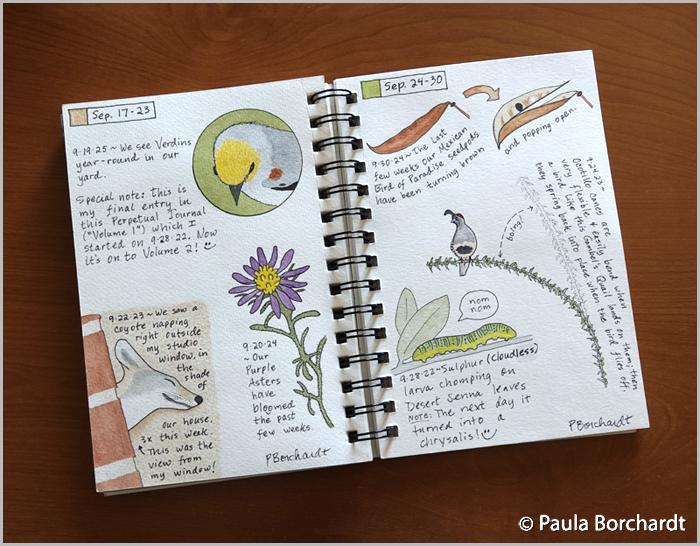 Sep. 17-23
9-19-25 ~ We see Verdins
year-round in our
yard.
Special note: This is
my final entry in
this Perpetual Journal
("Volume 1") which I
started on 9-28-22. Now
it's on to Volume 2!
9-22-23 ~ We saw a
coyote napping
right outside
my studio
window, in
the
shade
of
our house,
3x this week.
This was the
view from
my window!
9-20-24
~ Our
Purple
Asters
have
bloomed
the past
few weeks.
PBorchardt
Sep. 24-30
9-30-24 ~ The last
few weeks our Mexican
Bird of Paradise seedpods
have been turning brown
and popping open.
9-24-23 ~
Ocotillo canes are
very flexible & easily bend when
a bird like this Gambel's Quail lands on them, then
they spring back into place when the bird flies off.
boing!
nom
nom
9-28-22 ~ Sulphur (Cloudless)
larva chomping on
Desert Senna leaves
NOTE: The next day it
turned into a
chrysalis!
PBorchardt
© Paula Borchardt